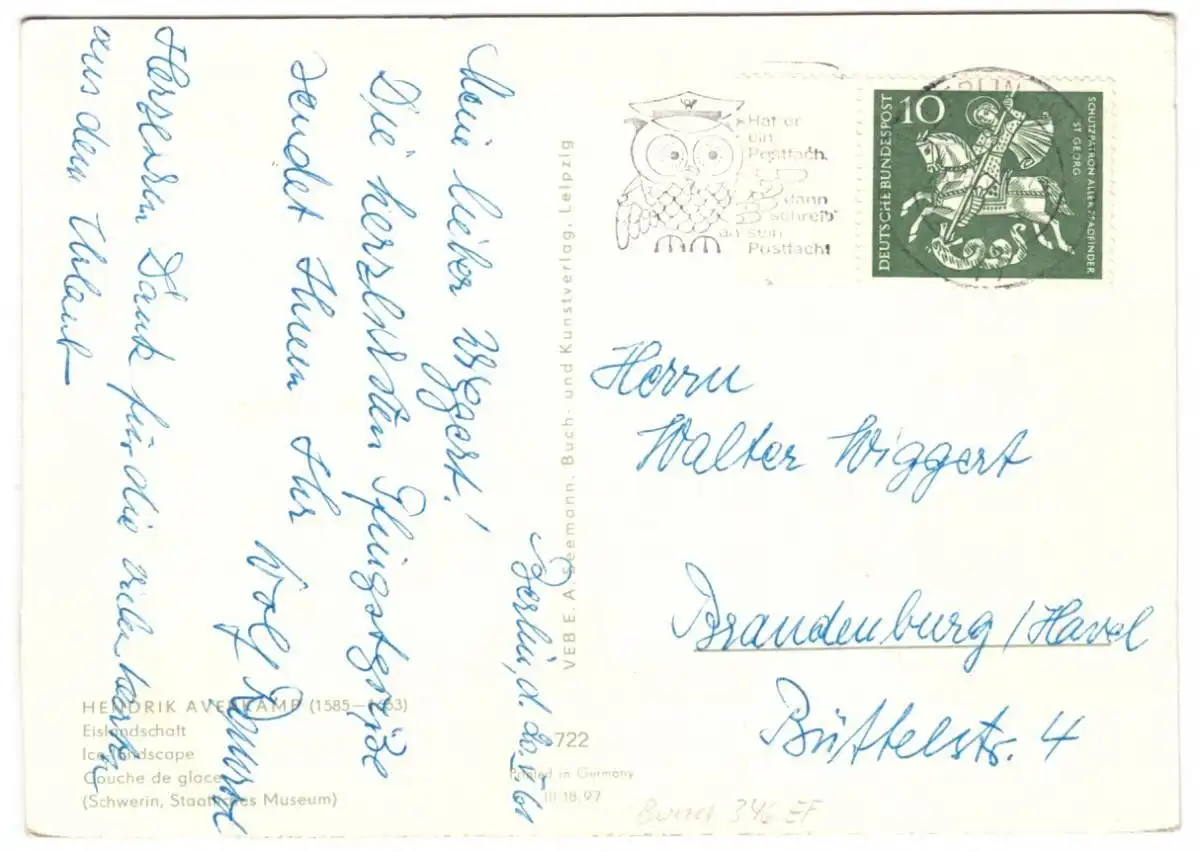 Berlin, d. 20.V.61
Mein lieber Wiggert!
Die herzlichsten Pfingstgrüße
sendet Ihnen Ihr
Wolf
Herzlichen Dank für die vielen Karten
aus dem Urlaub
HENDRIK AVERKAMP (1585–1663)
Eislandschaft
Ice landscape
Couche de glace
(Schwerin, Staatliches Museum)
VEB E. A. Seemann, Buch- und Kunstverlag, Leipzig
722
Printed in Germany
III 18 97
Hat er
ein
Postfach,
dann
schreib'
an sein
Postfach!
BERLIN
10
DEUTSCHE BUNDESPOST
SCHUTZPATRON ALLER PFADFINDER
ST GEORG
Herrn
Walter Wiggert
Brandenburg/Havel
Büttelstr. 4
346 EF